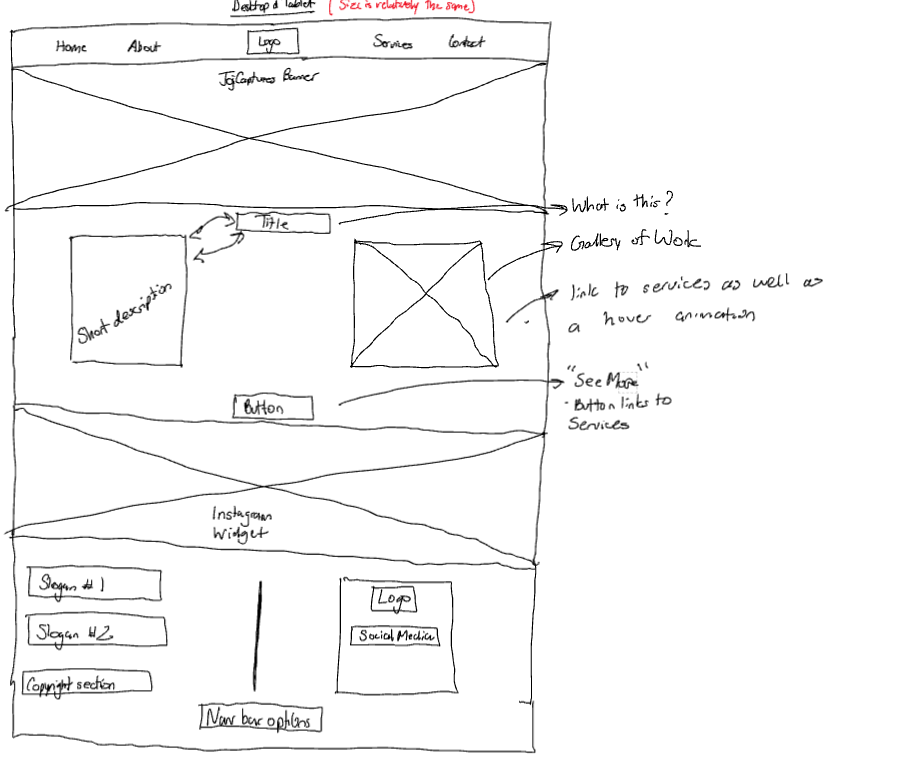 Desktop & Tablet (Size is relatively the same)
Home About Logo Services Contact
JojCaptures Banner
Title
What is this?
Gallery of Work
Short description
link to services as well as
a hover animation
"See More"
Button
- Button links to
Services
Instagram
Widget
Slogan #1
Logo
Slogan #2
Social Media
Copyright section
Nav bar options